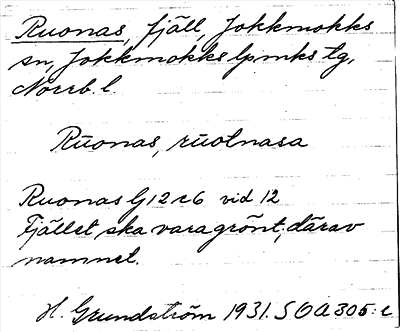 Ruonas, fjäll, Jokkmokks
sn, Jokkmokks lpmks tg,
Norrb. l.
Rūonas, rūotnasa
Ruonas G12c6 vid 12
Fjället ska vara grönt, därav
namnet.
H. Grundström 1931. SOA 305: c